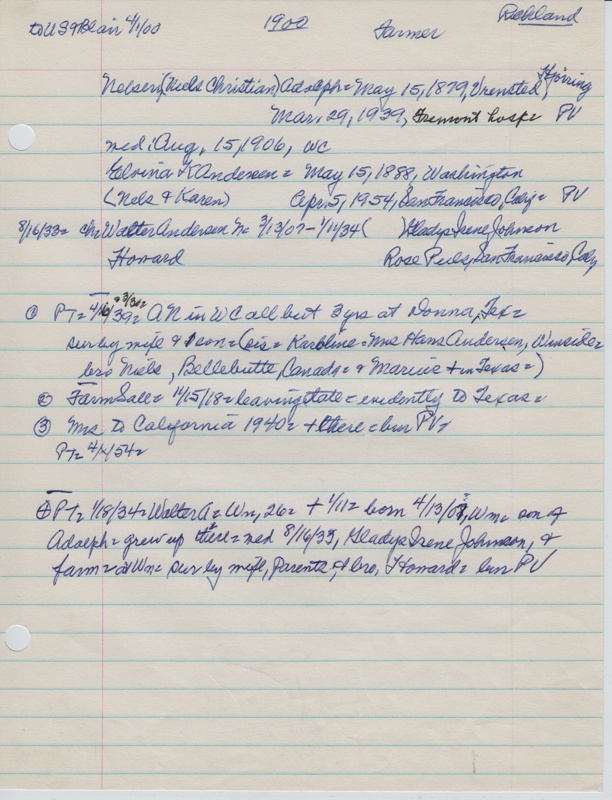 to US & Blair 4/1/00 1900 Farmer Richland
Nelsen, (Niels Christian) Adolph = May 15, 1879, Vrensted, Hjorring
Mar. 29, 1939, Fremont hosp = PV
med: Aug. 15, 1906, WC
Elvina K Andersen = May 15, 1888, Washington
(Nels & Karen) Apr. 5, 1954, San Francisco, Calif = PV
8/16/33 = ch = Walter Andersen N = 3/13/07 - 1/11/34 ( ) Gladys Irene Johnson
Howard Rose San Francisco, Calif
① PT = 39 = AN in WC all but 3 yrs at Donna, Tex =
sur by wife & son = (sis = Karoline = Mrs Hans Andersen, Winside =
bro Niels, Bellebutte, Canada = & Marius + in Texas =)
② Farm Sale = 11/15/18 = leaving state = evidently to Texas =
③ Mrs to California 1940 = + there = bur PV =
PT = 4/ /54 =
④ PT = 1/18/34 = Walter A = Wn, 26 = + 1/11 = born 4/13/07, Wm = son of
Adolph = grew up there = med 8/16/33, Gladys Irene Johnson, &
farm = at Wn = sur by wife, parents, & bro, Howard = bur PV